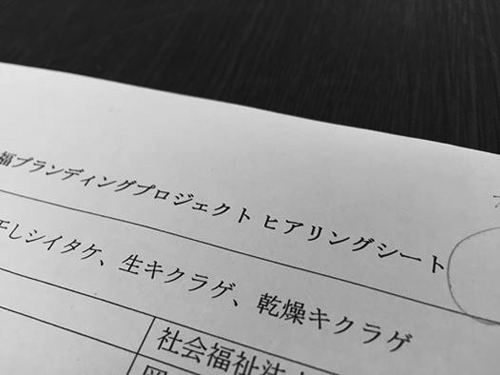 福ブランディングプロジェクト ヒアリングシート
干しシイタケ、生キクラゲ、乾燥キクラゲ
社会福祉法